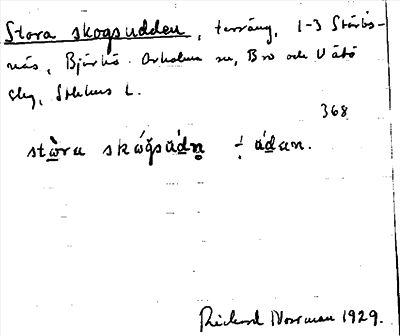 Stora skogsudden, terräng, 1-3 Störös-
näs, Björkö-Arholma sn, Bro och Vätö
skg, Sthlms L.
368
stωra skωgsu̇dn ÷ u̇dan.
Rickard Norrman 1929.